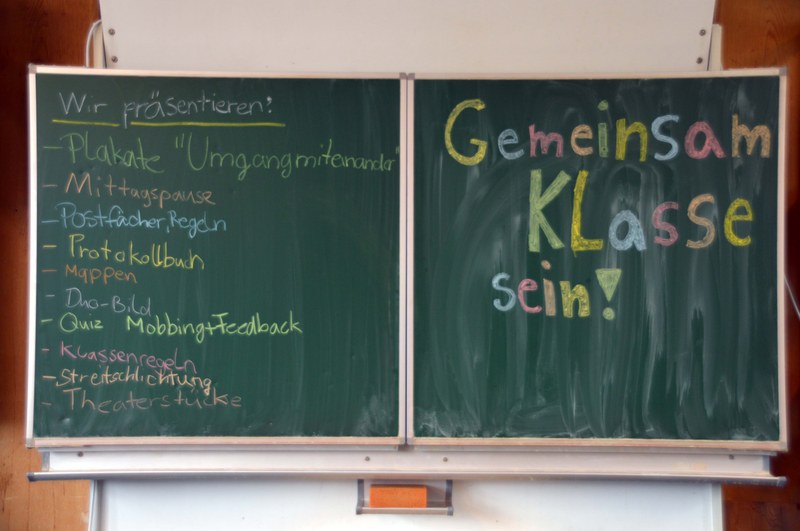 Wir präsentieren:
- Plakate "Umgangmiteinander"
- Mittagspause
- Postfächer, Regeln
- Protokollbuch
- Mappen
- Duo-Bild
- Quiz Mobbing+Feedback
- Klassenregeln
- Streitschlichtung
- Theaterstücke
Gemeinsam
KLasse
sein!